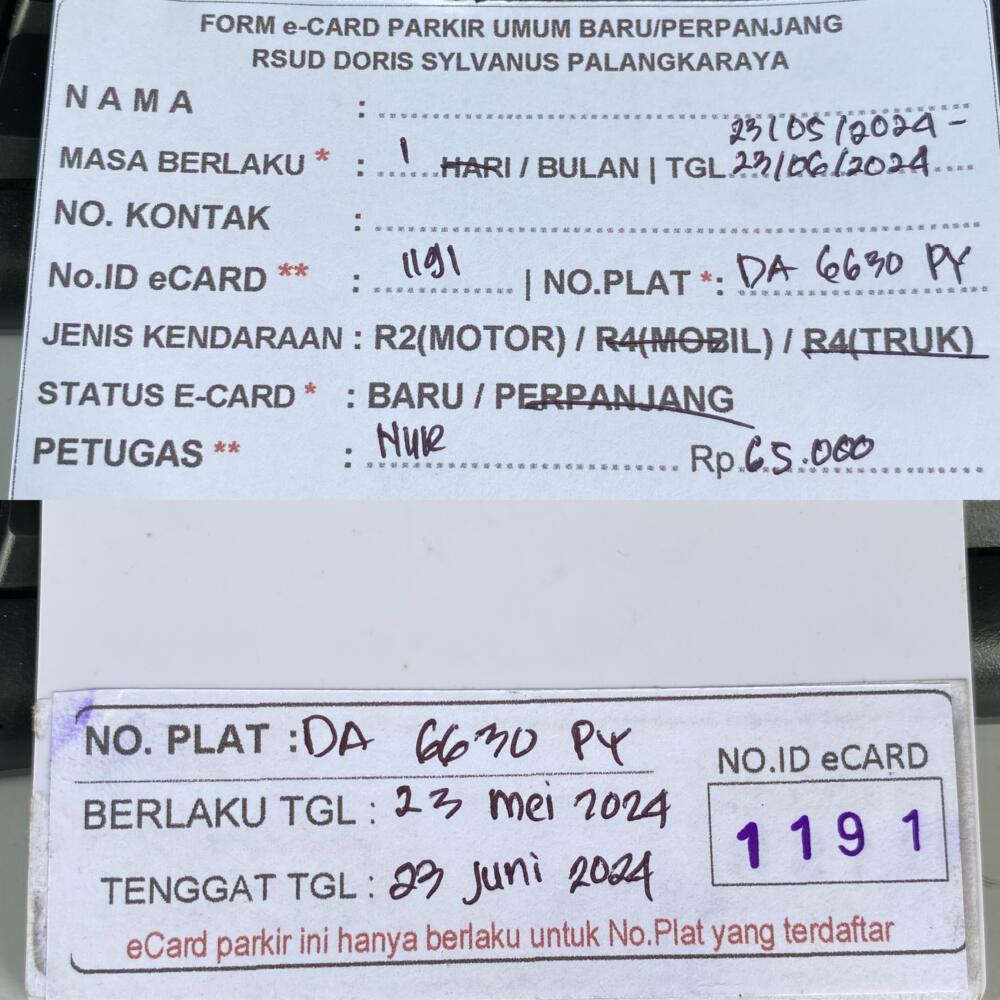 FORM e-CARD PARKIR UMUM BARU/PERPANJANG
RSUD DORIS SYLVANUS PALANGKARAYA
N A M A :
23/05/2024 -
MASA BERLAKU * : 1 HARI / BULAN | TGL 23/06/2024
NO. KONTAK :
No.ID eCARD ** : 1191 | NO.PLAT *: DA 6630 PY
JENIS KENDARAAN : R2(MOTOR) / R4(MOBIL) / R4(TRUK)
STATUS E-CARD * : BARU / PERPANJANG
PETUGAS ** : NUR Rp 65.000
NO. PLAT : DA 6630 PY
NO.ID eCARD
BERLAKU TGL : 23 mei 2024
1191
TENGGAT TGL : 23 Juni 2024
eCard parkir ini hanya berlaku untuk No.Plat yang terdaftar